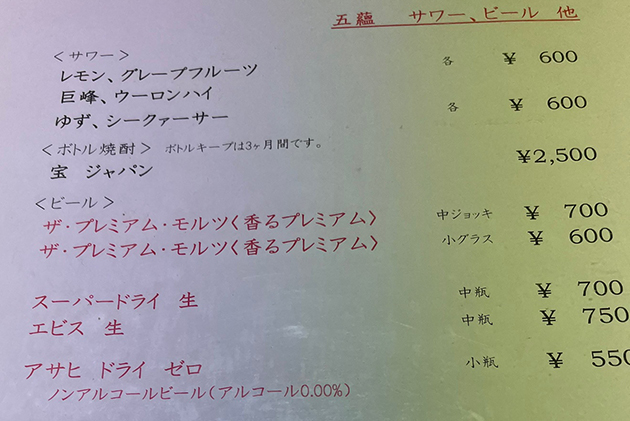 五蘊 サワー、ビール 他
＜サワー＞
レモン、グレープフルーツ 各 ￥ 600
巨峰、ウーロンハイ
ゆず、シークァーサー 各 ￥ 600
＜ボトル焼酎＞ ボトルキープは3ヶ月間です。
宝 ジャパン ￥2,500
＜ビール＞
ザ・プレミアム・モルツ〈香るプレミアム〉 中ジョッキ ￥ 700
ザ・プレミアム・モルツ〈香るプレミアム〉 小グラス ￥ 600
スーパードライ 生 中瓶 ￥ 700
エビス 生 中瓶 ￥ 750
アサヒ ドライ ゼロ 小瓶 ￥ 550
ノンアルコールビール(アルコール0.00%)